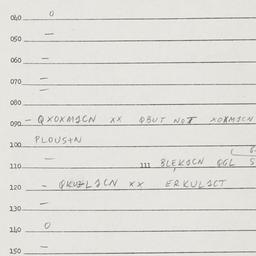 060 O
050 —
060 —
070 —
—
080
090 – QXOXMICN XX QBUT NOT XOXMICN
PLOUS+N
100
—
110 111 8LEKICN QGL S
120 – QKUZLICN XX ERKULICT
130 —
140 O
150 —